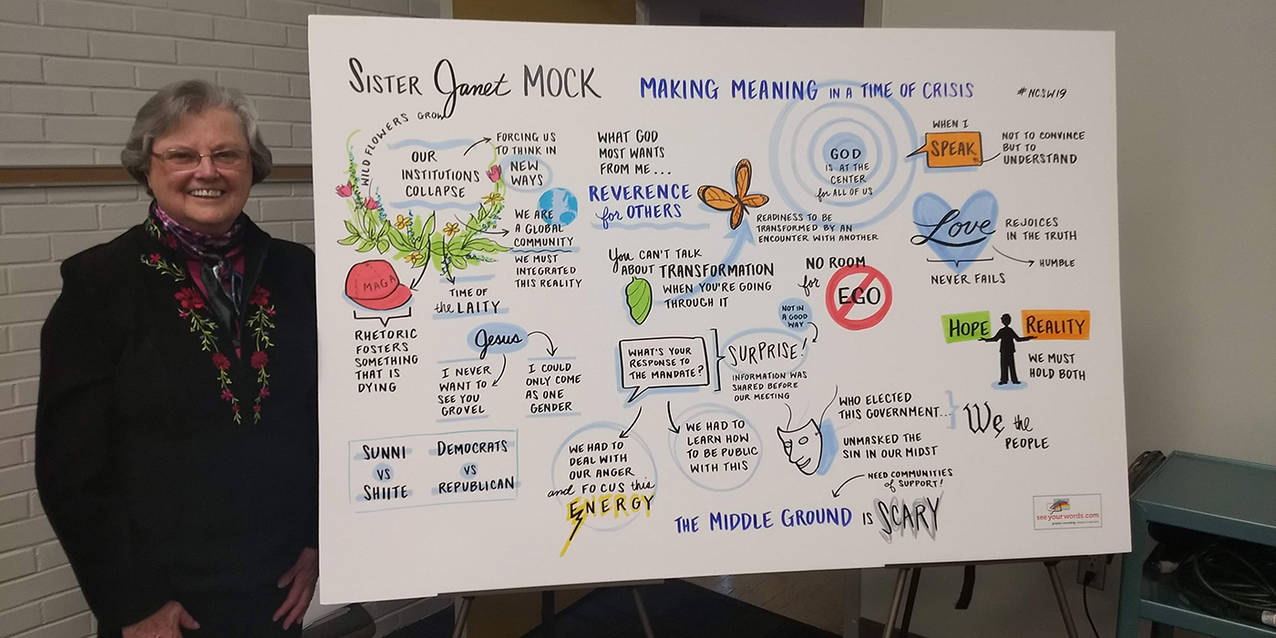 SISTER Janet MOCK
MAKING MEANING IN A TIME OF CRISIS
#NCSW19
WILD FLOWERS GROW
OUR
INSTITUTIONS
COLLAPSE
FORCING US
TO THINK IN
NEW
WAYS
WE ARE
A GLOBAL
COMMUNITY
WE MUST
INTEGRATED
THIS REALITY
TIME OF
the LAITY
MAGA
RHETORIC
FOSTERS
SOMETHING
THAT IS
DYING
Jesus
I NEVER
WANT TO
SEE YOU
GROVEL
I COULD
ONLY COME
AS ONE
GENDER
SUNNI
VS
SHIITE
DEMOCRATS
VS
REPUBLICAN
WHAT GOD
MOST WANTS
FROM ME...
REVERENCE
for OTHERS
READINESS TO BE
TRANSFORMED BY AN
ENCOUNTER WITH ANOTHER
You CAN'T TALK
ABOUT TRANSFORMATION
WHEN YOU'RE GOING
THROUGH IT
GOD
IS AT THE
CENTER
for ALL OF US
WHEN I
SPEAK
NOT TO CONVINCE
BUT TO
UNDERSTAND
Love
NEVER FAILS
REJOICES
IN THE TRUTH
HUMBLE
NO ROOM
for
EGO
HOPE
REALITY
WE MUST
HOLD BOTH
WHAT'S YOUR
RESPONSE TO
THE MANDATE?
NOT IN
A GOOD
WAY
SURPRISE!
INFORMATION WAS
SHARED BEFORE
OUR MEETING
WE HAD TO
DEAL WITH
OUR ANGER
and FOCUS this
ENERGY
WE HAD TO
LEARN HOW
TO BE PUBLIC
WITH THIS
WHO ELECTED
THIS GOVERNMENT...
We the
PEOPLE
UNMASKED THE
SIN IN OUR MIDST
NEED COMMUNITIES
OF SUPPORT!
THE MIDDLE GROUND IS SCARY
seeyourwords.com